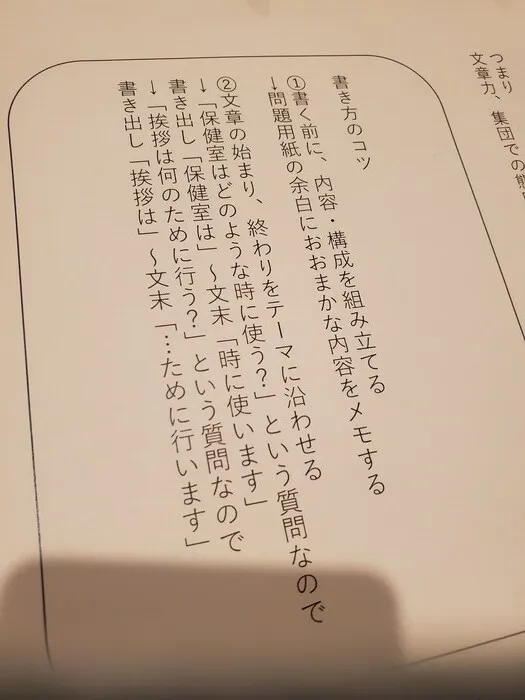 つまり
文章力、集団での
書き方のコツ
①書く前に、内容・構成を組み立てる
→問題用紙の余白におおまかな内容をメモする
②文章の始まり、終わりをテーマに沿わせる
→「保健室はどのような時に使う？」という質問なので
書き出し「保健室は」～文末「時に使います」
→「挨拶は何のために行う？」という質問なので
書き出し「挨拶は」～文末「…ために行います」